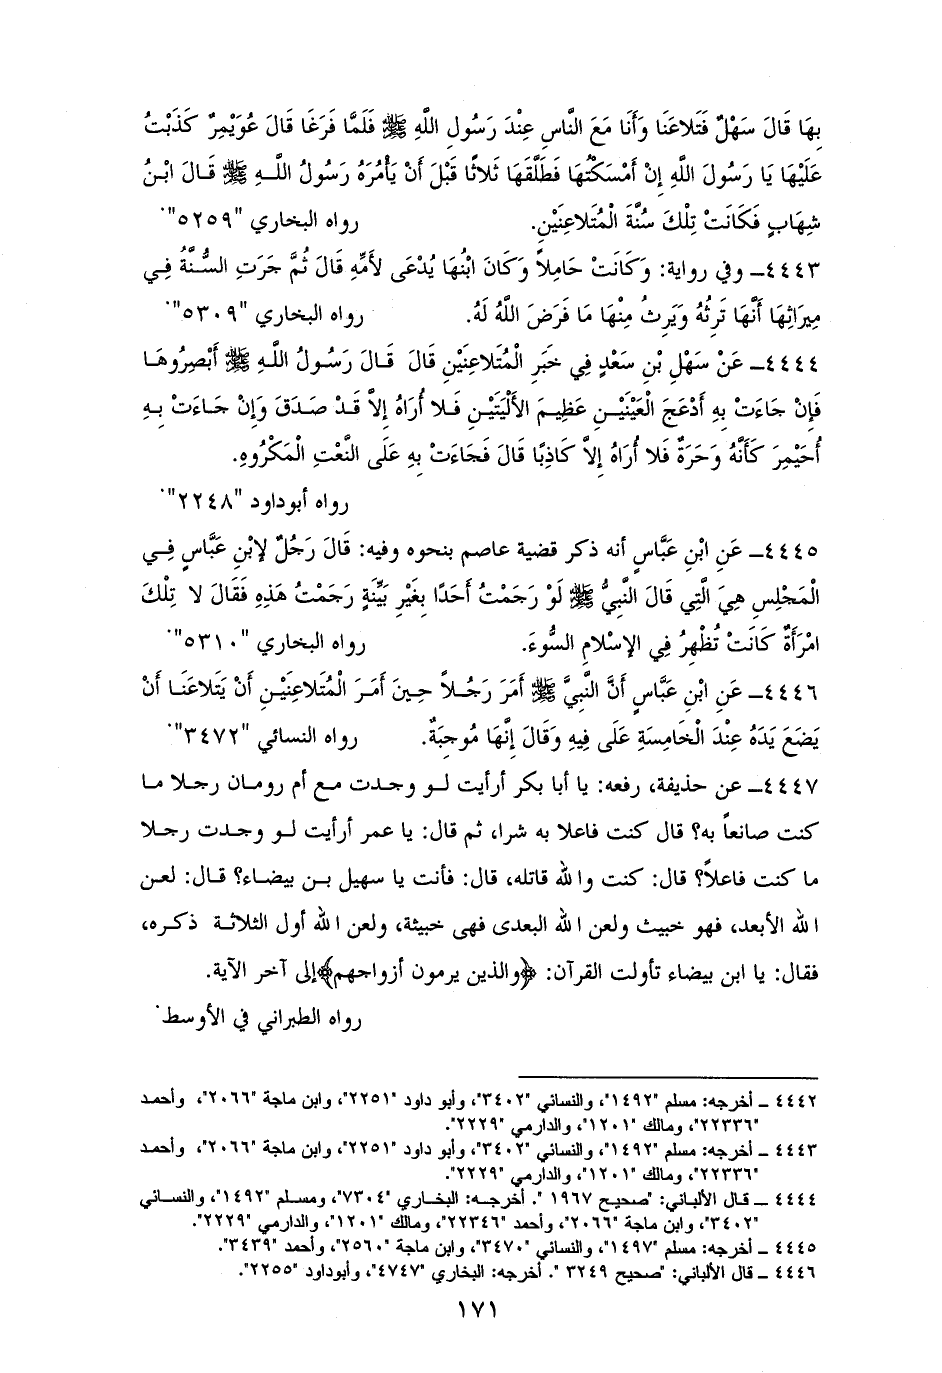 بِهَا قَالَ سَهْلٌ فَتَلاعَنَا وَأَنَا مَعَ النَّاسِ عِنْدَ رَسُولِ اللَّهِ ﷺ فَلَمَّا فَرَغَا قَالَ عُوَيْمِرٌ كَذَبْتُ
عَلَيْهَا يَا رَسُولَ اللَّهِ إِنْ أَمْسَكْتُهَا فَطَلَّقَهَا ثَلاثًا قَبْلَ أَنْ يَأْمُرَهُ رَسُولُ اللَّهِ ﷺ قَالَ ابْنُ
شِهَابٍ فَكَانَتْ تِلْكَ سُنَّةَ الْمُتَلاعِنَيْنِ. رواه البخاري "٥٢٥٩".
٤٤٤٣ـ وفي رواية: وَكَانَتْ حَامِلاً وَكَانَ ابْنُهَا يُدْعَى لأُمِّهِ قَالَ ثُمَّ جَرَتِ السُّنَّةُ فِي
مِيرَاثِهَا أَنَّهَا تَرِثُهُ وَيَرِثُ مِنْهَا مَا فَرَضَ اللَّهُ لَهُ. رواه البخاري "٥٣٠٩".
٤٤٤٤ـ عَنْ سَهْلِ بْنِ سَعْدٍ فِي خَبَرِ الْمُتَلاعِنَيْنِ قَالَ قَالَ رَسُولُ اللَّهِ ﷺ أَبْصِرُوهَا
فَإِنْ جَاءَتْ بِهِ أَدْعَجَ الْعَيْنَيْنِ عَظِيمَ الأَلْيَتَيْنِ فَلا أُرَاهُ إِلاَّ قَدْ صَدَقَ وَإِنْ جَاءَتْ بِهِ
أُحَيْمِرَ كَأَنَّهُ وَحَرَةٌ فَلا أُرَاهُ إِلاَّ كَاذِبًا قَالَ فَجَاءَتْ بِهِ عَلَى النَّعْتِ الْمَكْرُوهِ.
رواه أبوداود "٢٢٤٨".
٤٤٤٥ـ عَنِ ابْنِ عَبَّاسٍ أنه ذكر قضية عاصم بنحوه وفيه: قَالَ رَجُلٌ لاِبْنِ عَبَّاسٍ فِي
الْمَجْلِسِ هِيَ الَّتِي قَالَ النَّبِيُّ ﷺ لَوْ رَجَمْتُ أَحَدًا بِغَيْرِ بَيِّنَةٍ رَجَمْتُ هَذِهِ فَقَالَ لا تِلْكَ
امْرَأَةٌ كَانَتْ تُظْهِرُ فِي الإِسْلامِ السُّوءَ. رواه البخاري "٥٣١٠".
٤٤٤٦ـ عَنِ ابْنِ عَبَّاسٍ أَنَّ النَّبِيَّ ﷺ أَمَرَ رَجُلاً حِينَ أَمَرَ الْمُتَلاعِنَيْنِ أَنْ يَتَلاعَنَا أَنْ
يَضَعَ يَدَهُ عِنْدَ الْخَامِسَةِ عَلَى فِيهِ وَقَالَ إِنَّهَا مُوجِبَةٌ. رواه النسائي "٣٤٧٢".
٤٤٤٧ـ عن حذيفة، رفعه: يا أبا بكر أرأيت لو وجدت مع أم رومان رجلا ما
كنت صانعاً به؟ قال كنت فاعلا به شرا، ثم قال: يا عمر أرأيت لو وجدت رجلا
ما كنت فاعلاً؟ قال: كنت والله قاتله، قال: فأنت يا سهيل بن بيضاء؟ قال: لعن
الله الأبعد، فهو خبيث ولعن الله البعدى فهى خبيثة، ولعن الله أول الثلاثة ذكره،
فقال: يا ابن بيضاء تأولت القرآن: ﴿والذين يرمون أزواجهم﴾إلى آخر الآية.
رواه الطبراني في الأوسط.
٤٤٤٢ ـ أخرجه: مسلم "١٤٩٢"، والنسائي "٣٤٠٢"، وأبو داود "٢٢٥١"، وابن ماجة "٢٠٦٦"، وأحمد
"٢٢٣٣٦"، ومالك "١٢٠١"، والدارمي "٢٢٢٩".
٤٤٤٣ ـ أخرجه: مسلم "١٤٩٢"، والنسائي "٣٤٠٢"، وأبو داود "٢٢٥١"، وابن ماجة "٢٠٦٦"، وأحمد
"٢٢٣٣٦"، ومالك "١٢٠١"، والدارمي "٢٢٢٩".
٤٤٤٤ ـ قال الألباني: "صحيح ١٩٦٧ ". أخرجه: البخاري "٧٣٠٤"، ومسلم "١٤٩٢"، والنسائي
"٣٤٠٢"، وابن ماجة "٢٠٦٦"، وأحمد "٢٢٣٤٦"، ومالك "١٢٠١"، والدارمي "٢٢٢٩".
٤٤٤٥ ـ أخرجه: مسلم "١٤٩٧"، والنسائي "٣٤٧٠"، وابن ماجة "٢٥٦٠"، وأحمد "٣٤٣٩".
٤٤٤٦ ـ قال الألباني: "صحيح ٣٢٤٩ ". أخرجه: البخاري "٤٧٤٧"، وأبوداود "٢٢٥٥".
١٧١